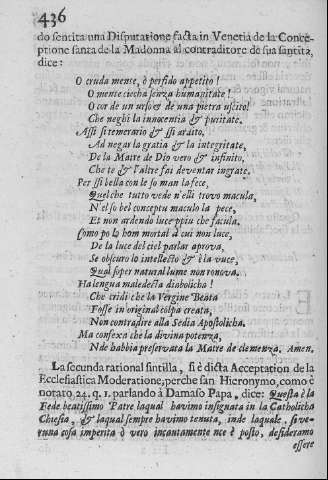 436
do sentita una Disputatione facta in Venetia de la Conce-
ptione santa de la Madonna al contraditore de sua santità,
dice:
O cruda mense, ò perfido appetito!
O mente ciecha senza humanitate!
O cor de un urso & de una pietra uscito!
Che neghi la innocentia & puritate.
Assi si temerario & ssi ardito.
Ad negar la gratia & la integritate,
De la Matre de Dio vero & infinito,
Che te & l'altre fai deventar ingrate.
Per ssi bella con le so man la fece,
Quelche tutto vede n'elli trovo macula,
N'el so bel conceptu maculo la pece,
Et non ardendo luce ppiu che facula.
Como po la hom mortal à cui non luce,
De la luce del ciel parlar aprova,
Se obscuro lo intellecto & è la vuce,
Qual soper natural lume non ronova.
Ha lengua maledecta diabolicha!
Che cridi che la Vergine Beata
Fosse in original colpa creata,
Non contradire alla Sedia Apostolicha.
Ma confexa che la divina potenza,
Nde habbia preservata la Matre de clemenza. Amen.
La secunda rational sintilla, si è dicta Acceptation de la
Ecclesiastica Moderatione, perche san Hieronymo, como è
notato 24. q. 1. parlando à Damaso Papa, dice: Questa è la
Fede beatissimo Patre laqual havimo insignata in la Catholicha
Chiesia, & laqual sempre havimo tenuta, inde laquale, si ve-
runa cosa imperita ò vero incautamente nce è posto, desideramo
essere